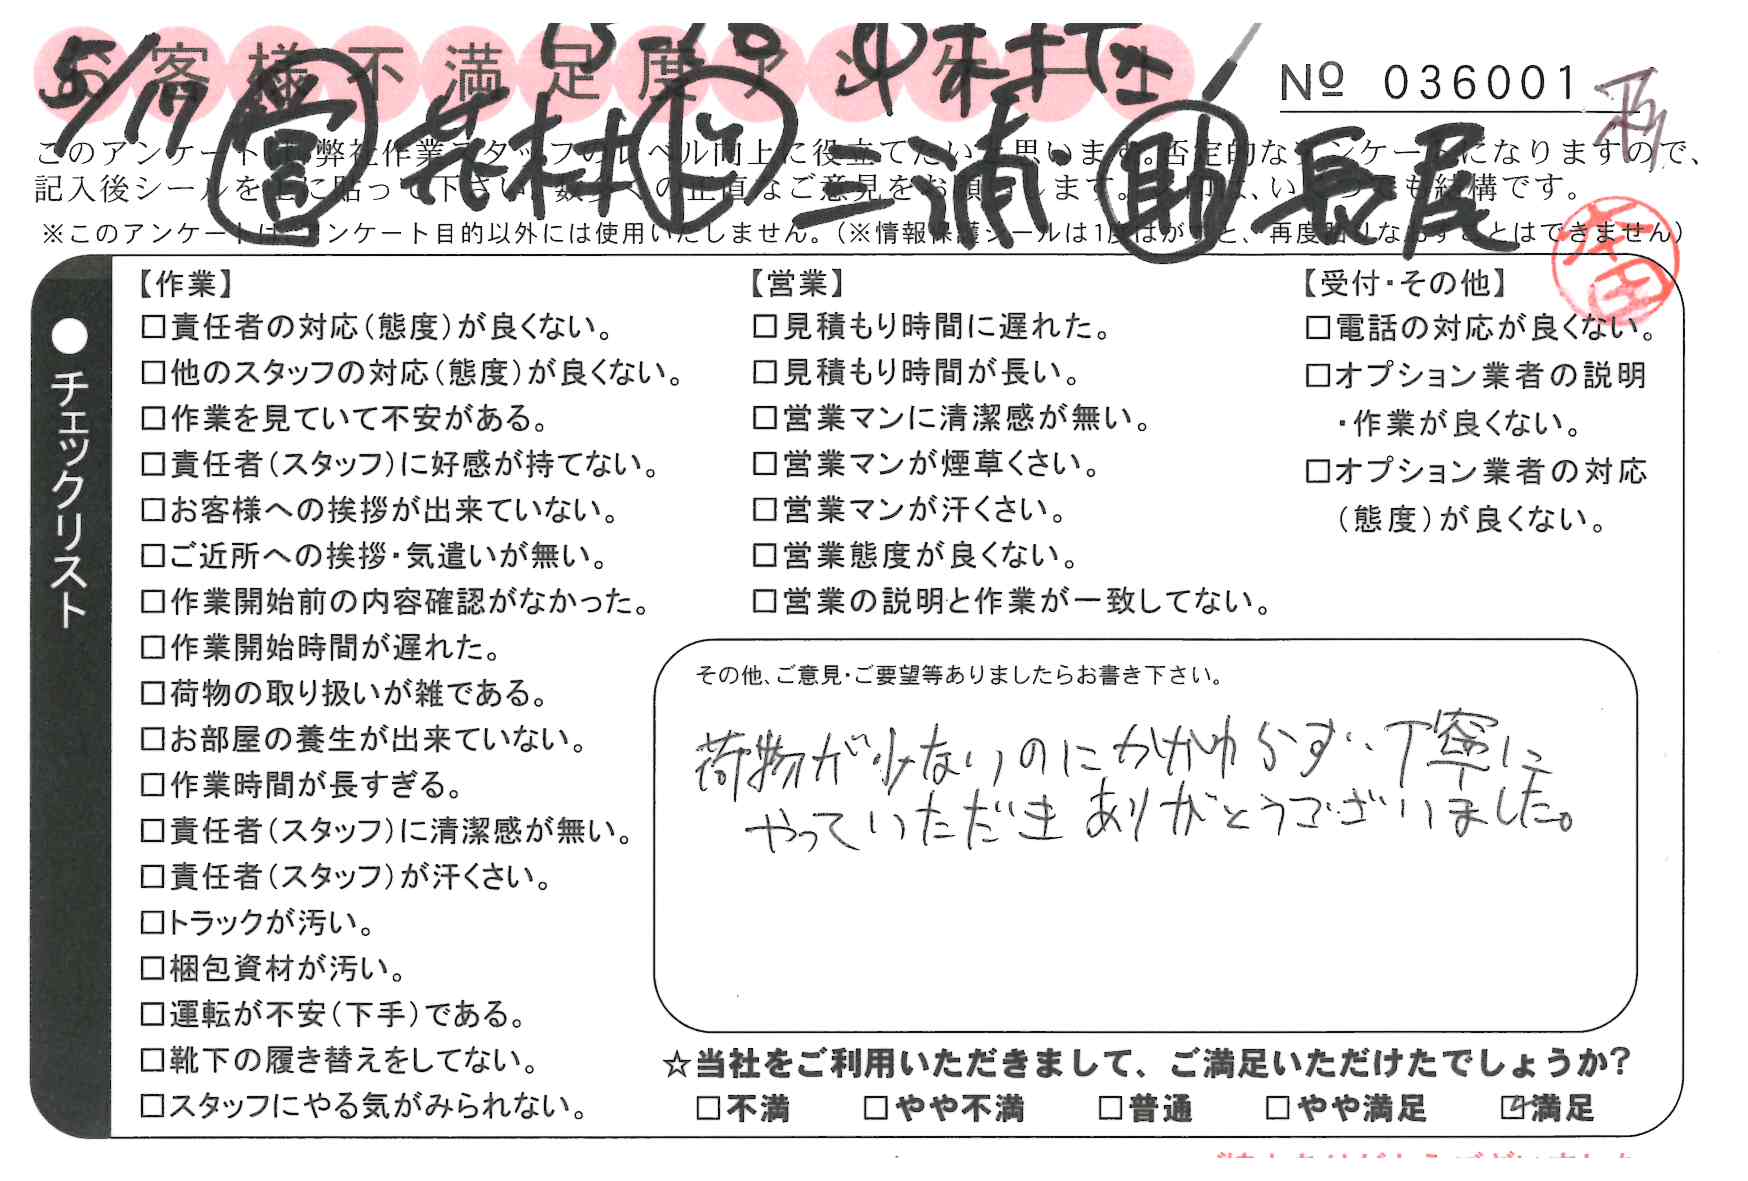 お客様不満足度アンケート
5/17 営 花村 作 三浦 助 長尾
№ 036001
このアンケートは、弊社作業スタッフのレベル向上に役立てたいと思います。否定的なアンケートになりますので、
記入後シールを上に貼って下さい。数多くの正直なご意見をお願いします。
※このアンケートはアンケート目的以外には使用いたしません。(※情報保護シールは1度はがすと、再度貼りなおすことはできません)
本田
●チェックリスト
【作業】
□責任者の対応(態度)が良くない。
□他のスタッフの対応(態度)が良くない。
□作業を見ていて不安がある。
□責任者(スタッフ)に好感が持てない。
□お客様への挨拶が出来ていない。
□ご近所への挨拶・気遣いが無い。
□作業開始前の内容確認がなかった。
□作業開始時間が遅れた。
□荷物の取り扱いが雑である。
□お部屋の養生が出来ていない。
□作業時間が長すぎる。
□責任者(スタッフ)に清潔感が無い。
□責任者(スタッフ)が汗くさい。
□トラックが汚い。
□梱包資材が汚い。
□運転が不安(下手)である。
□靴下の履き替えをしてない。
□スタッフにやる気がみられない。
【営業】
□見積もり時間に遅れた。
□見積もり時間が長い。
□営業マンに清潔感が無い。
□営業マンが煙草くさい。
□営業マンが汗くさい。
□営業態度が良くない。
□営業の説明と作業が一致してない。
【受付・その他】
□電話の対応が良くない。
□オプション業者の説明
・作業が良くない。
□オプション業者の対応
(態度)が良くない。
その他、ご意見・ご要望等ありましたらお書き下さい。
荷物が少ないのにかかわらず、丁寧に
やっていただきありがとうございました。
☆当社をご利用いただきまして、ご満足いただけたでしょうか?
□不満 □やや不満 □普通 □やや満足 ☑満足